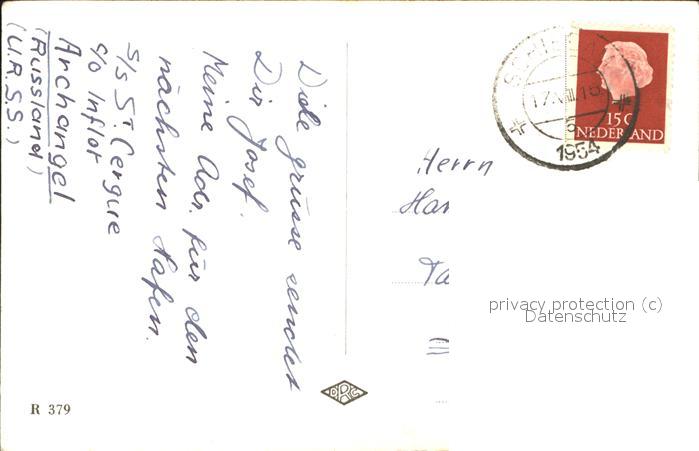 Viele grüsse sendet
Dir Josef.
Meine Adr. für den
nächsten Hafen.
S/S St. Cergue
c/o Inflot
Archangel
(Russland)
(U.R.S.S.)
Herrn
Har
Ta
privacy protection (c)
Datenschutz
SCHIE
17.VIII.18
1954
15 C
NEDERLAND
R 379